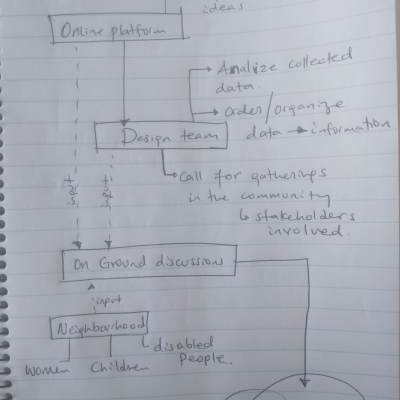 ideas
Online platform
Analize collected
data.
Order/organize
data → information
Design team
Call for gatherings
in the community
↳ stakeholders
involved.
On Ground discussions
input
Neighbourhood
disabled
people.
Women
Children